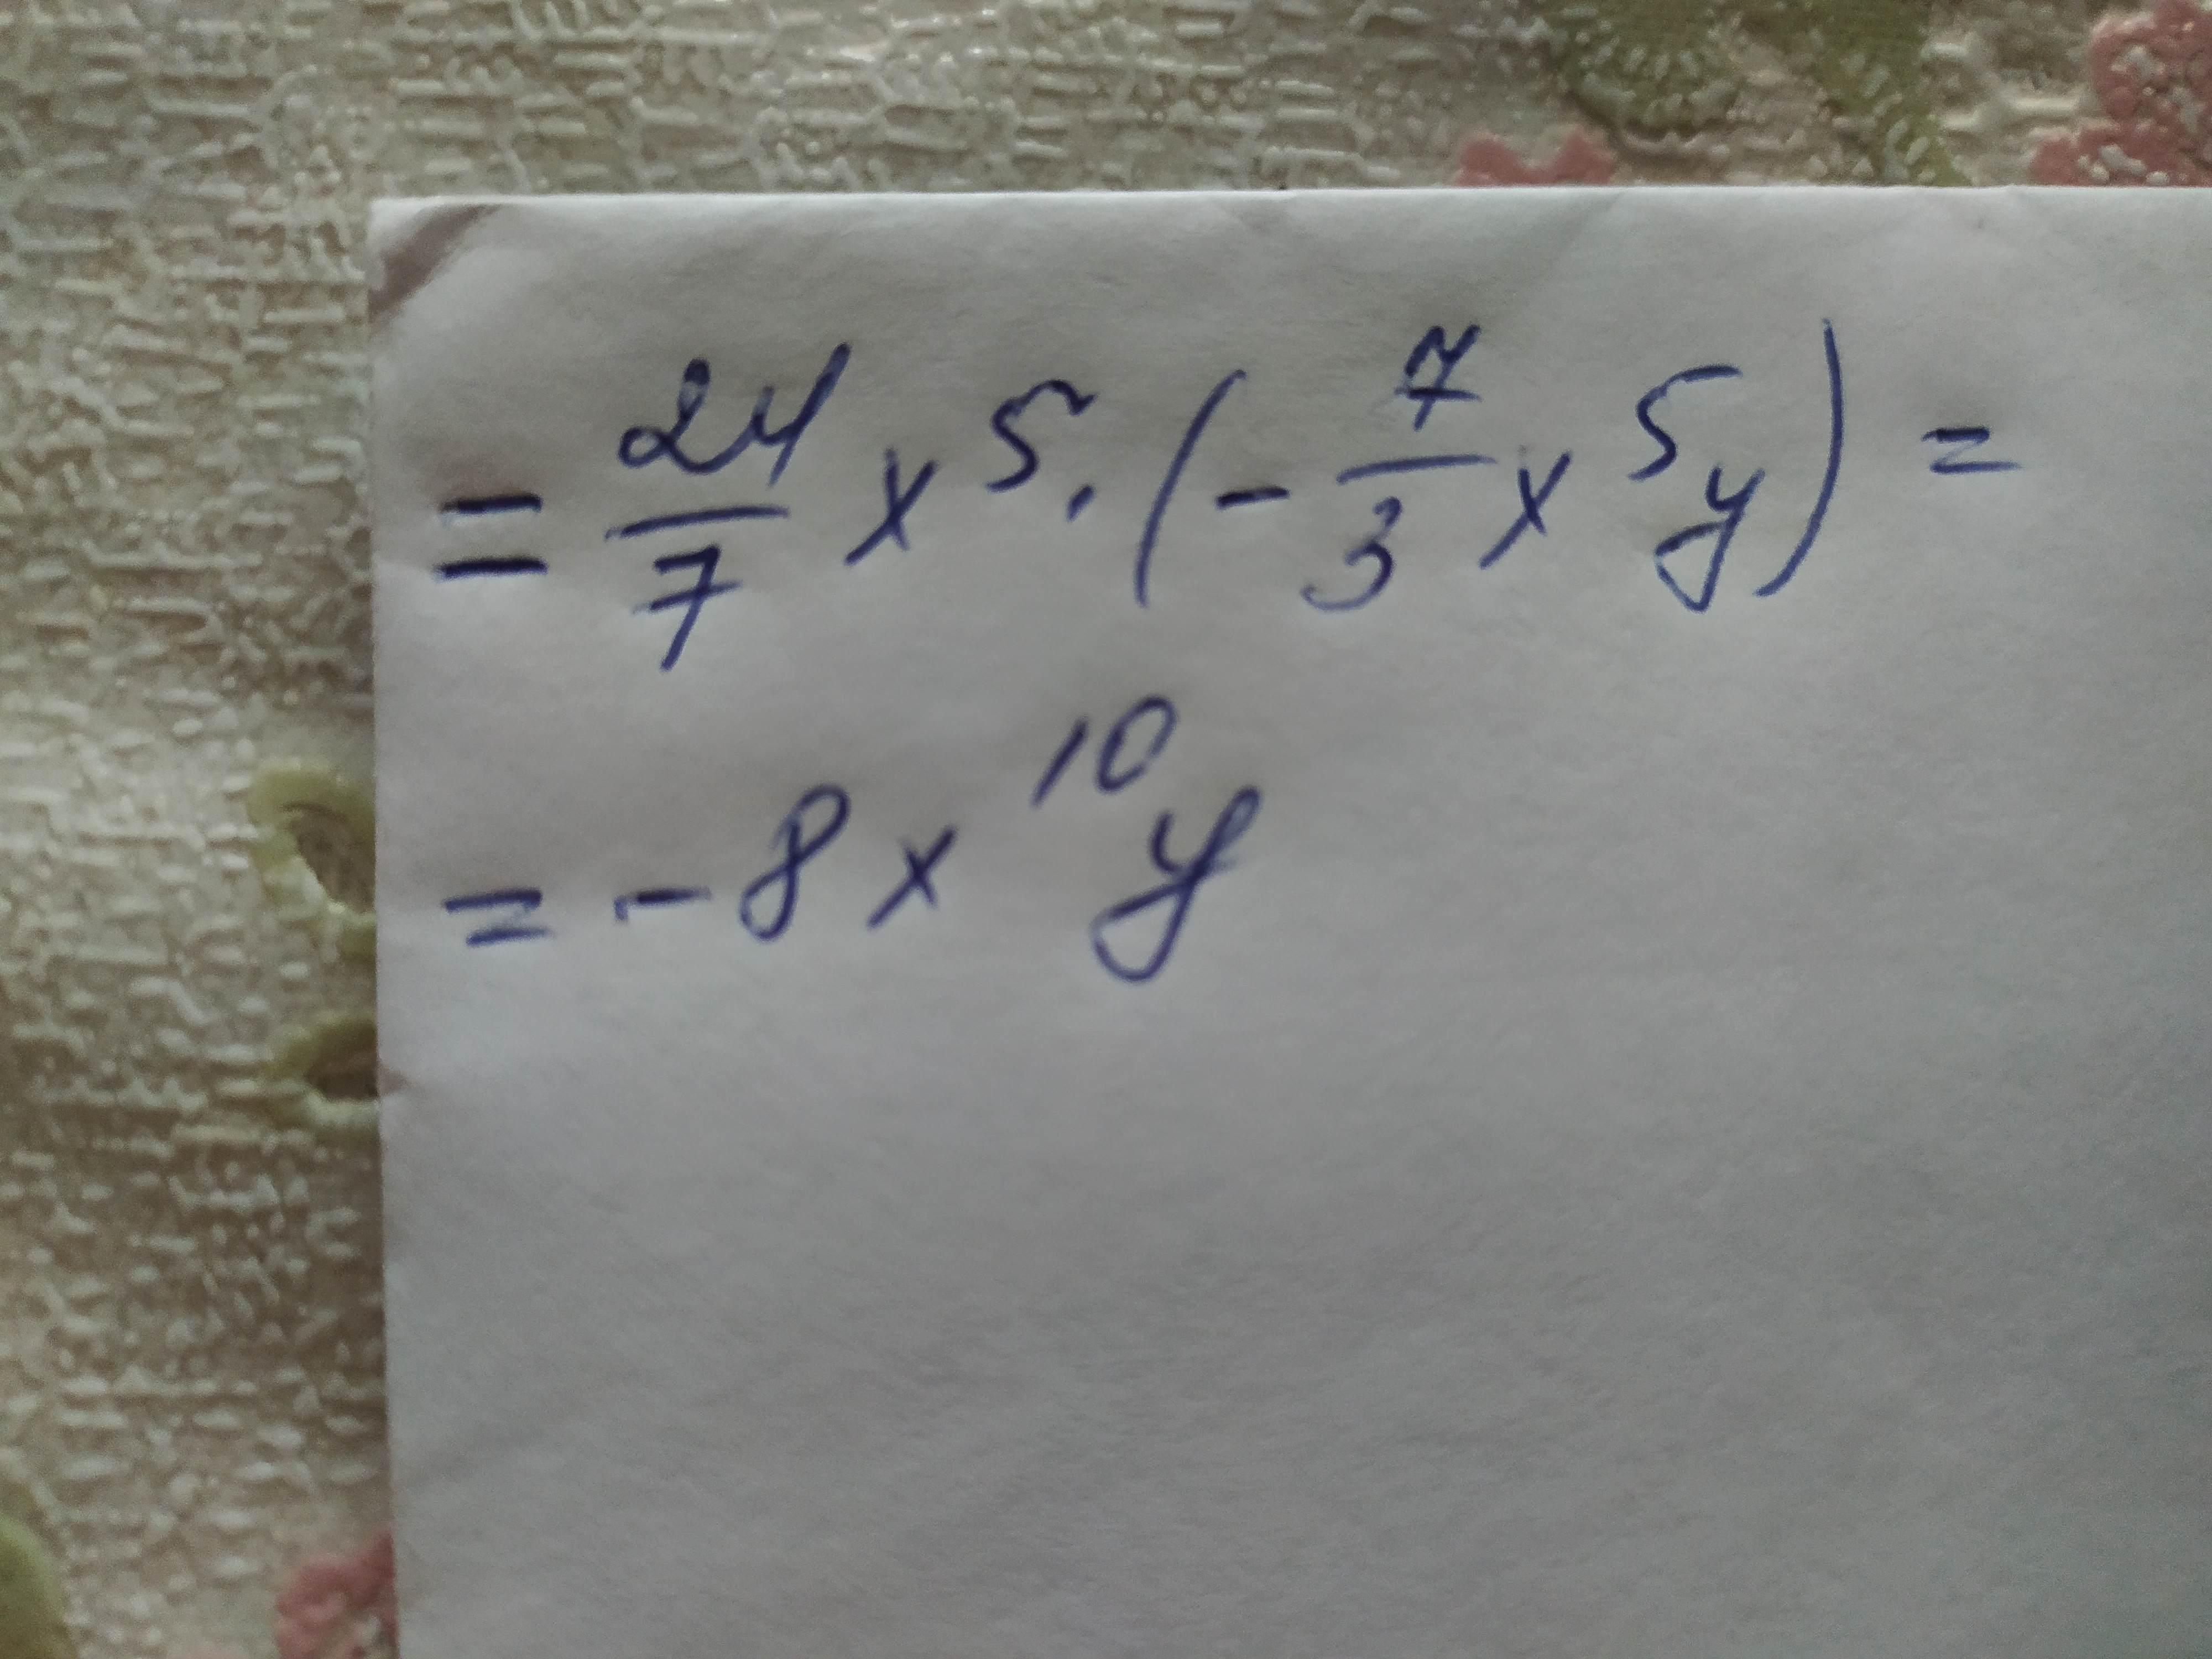 = 24/7 x⁵ · (- 7/3 x⁵y) =
= - 8x¹⁰y